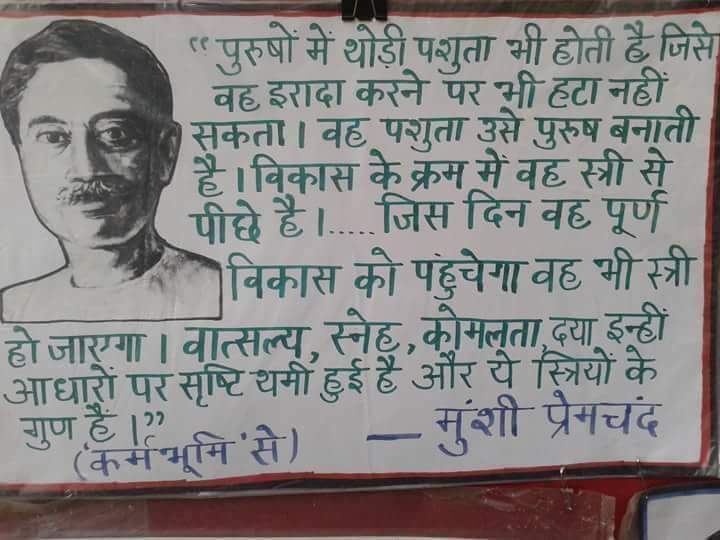 “पुरुषों में थोड़ी पशुता भी होती है जिसे
वह इरादा करने पर भी हटा नहीं
सकता। वह पशुता उसे पुरुष बनाती
है। विकास के क्रम में वह स्त्री से
पीछे है।..... जिस दिन वह पूर्ण
विकास को पहुंचेगा वह भी स्त्री
हो जाएगा। वात्सल्य, स्नेह, कोमलता, दया इन्हीं
आधारों पर सृष्टि थमी हुई है और ये स्त्रियों के
गुण हैं।”
— मुंशी प्रेमचंद
(‘कर्मभूमि’ से)